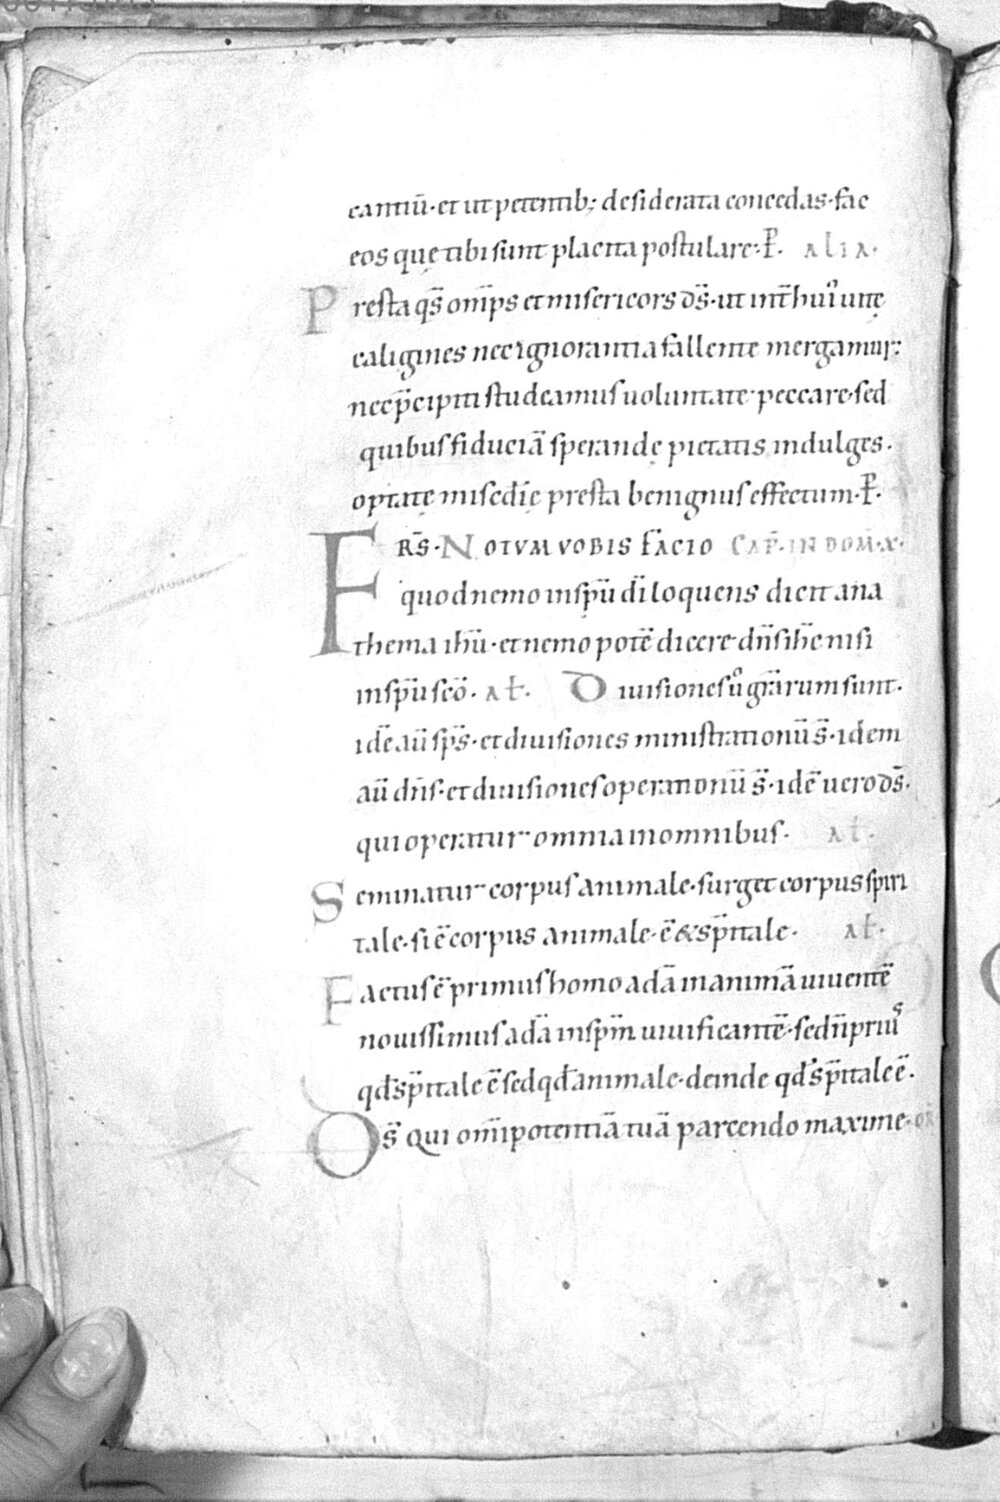 cantiū· et ut petentib; desiderata concedas· fac
eos quę tibi sunt placita postulare·· P̄. ALIA·
Presta qs̄ om̄ps et misericors ds̄· ut int̄ hui᷒ uitę
caligines nec ignorantia fallente mergamur:
nec p̄cipiti studeamus uoluntate peccare· sed
quibus fiduciā sperandę pietatis indulges·
optatę misēdię presta benignus effectum· P̄.
FRS̄· NOTVM VOBIS FACIO CAP̄· IN DOM̄·X·
quod nemo in sp̄u dī loquens dicit ana
thema ih̄u· et nemo potē dicere dn̄s ih̄c nisi
in sp̄u scō· AƚƗ· Diuisiones ů gr̄arum sunt·
idē aū sp̄s· et diuisiones ministrationū s̄· idem
aū dn̄s· et diuisiones operationū s̄· idē uero ds̄·
qui operatur omnia in omnibus· Aƚ·
Seminatur corpus animale· surget corpus spiri
tale· si ē corpus animale· ē & sp̄itale· Aƚ·
Factus ē primus homo adā in animā uiuentē
nouissimus adā in sp̄m uiuificantē· sed n̄ prius
qd̄ sp̄itale ē sed qd̄ animale· deinde qd̄ sp̄itale ē·
Ds̄ qui om̄ipotentiā tuā parcendo maxime· OR̄